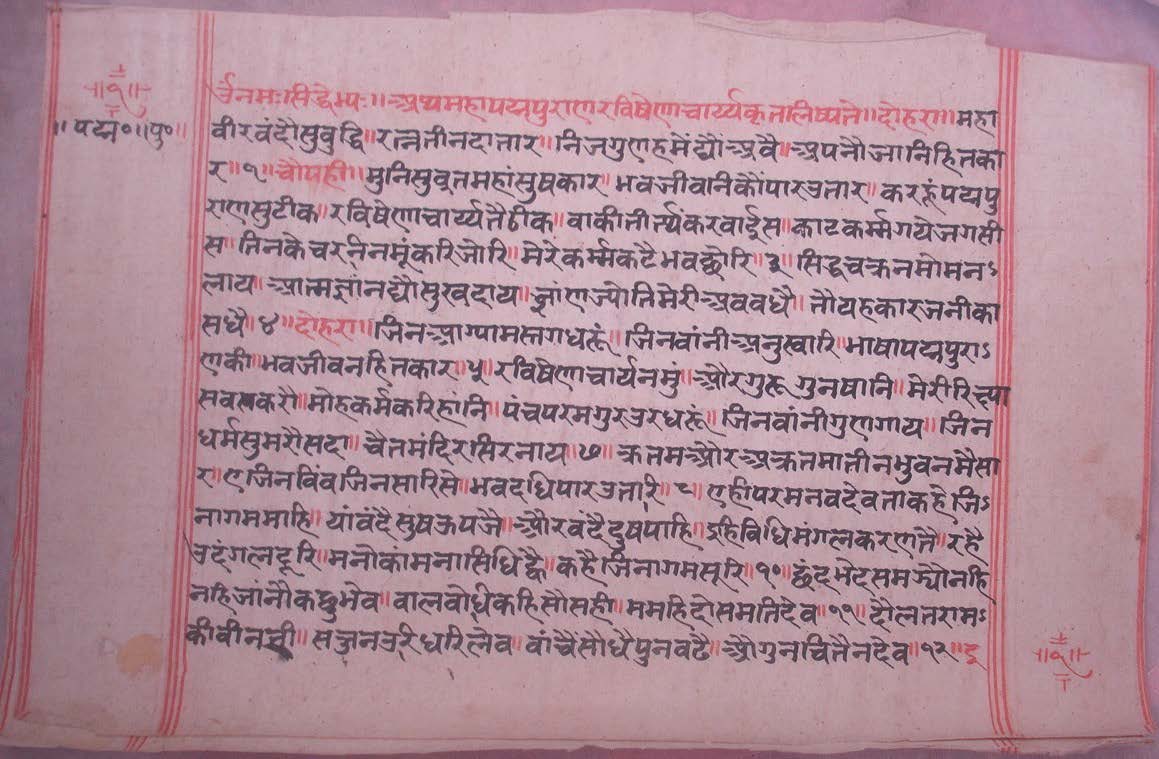 ॥१॥
॥पद्म०॥पु०॥
ॐनमःसिद्धेभ्यः॥अथमहापद्मपुराणरविषेणाचार्य्यकृतालिष्यते॥दोहरा॥महा
वीरवंदौसुवुद्धि॥रत्नतीनदातार॥निजगुणहमेंद्यौंअवै॥अपनौजानिहितका
र॥१॥चौपही॥मुनिसुवृतमहांसुषकार॥भवजीवानिकौंपारउतार॥करहूंपद्मपु
राणसुटीक॥रविषेणाचार्य्यतैठीक॥वाकीतीर्त्थंकरवाईस॥काटकर्म्मगयेजगसी
स॥तिनकेचर्ननमूंकरिजोरि॥मेरेकर्म्मकटैभवछोरि॥३॥सिद्धचक्रनमोमनऽ
लाय॥आत्मज्ञांनद्यौसुखदाय॥ज्ञांणज्योतिमेरीअववधै॥तौयहकारजनीका
सधै॥४॥दोहरा॥जिनआग्यामस्तगधरूं॥जिनवांनीअनुस्वारि॥भाषापद्मपुराऽ
णकी॥भवजीवनहितकार॥५॥रविषेणाचार्यनमुं॥औरगुरूगुनषानि॥मेरीरिछ्या
सवकरौ॥मोहकर्मकरिहांनि॥पंचपरमगुरउरधरूं॥जिनवांनीगुणगाय॥जिन
धर्मसुमरौसदा॥चैतमंदिरसिरनाय॥७॥क्रतमऔरअक्रतमातीनभुवनमैसा
र॥एजिनविंवजिनसारिसे॥भवदधिपारउतारि॥८॥एहीपरमनवदेवताकहैजिऽ
नागममाहि॥यांवंदैसुषऊपजै॥औरवंदैदुषपाहि॥इहिविधिमंगलकरणतै॥रहै
उदंगलदूरि॥मनोकांमनासिधिह्वै॥कहैजिनागमसूरि॥१०॥छंदभेदसमज्यौनहि
नहिजांनौकछुभेव॥वालवोधकहिसौसही॥ममहिदोसमतिदेव॥११॥दौलतरामऽ
कीवीनती॥सज्जनउरिधरिलेव॥वांचैसौधैपुनवटै॥औगुनचितैनदेव॥१२॥दू
॥१॥